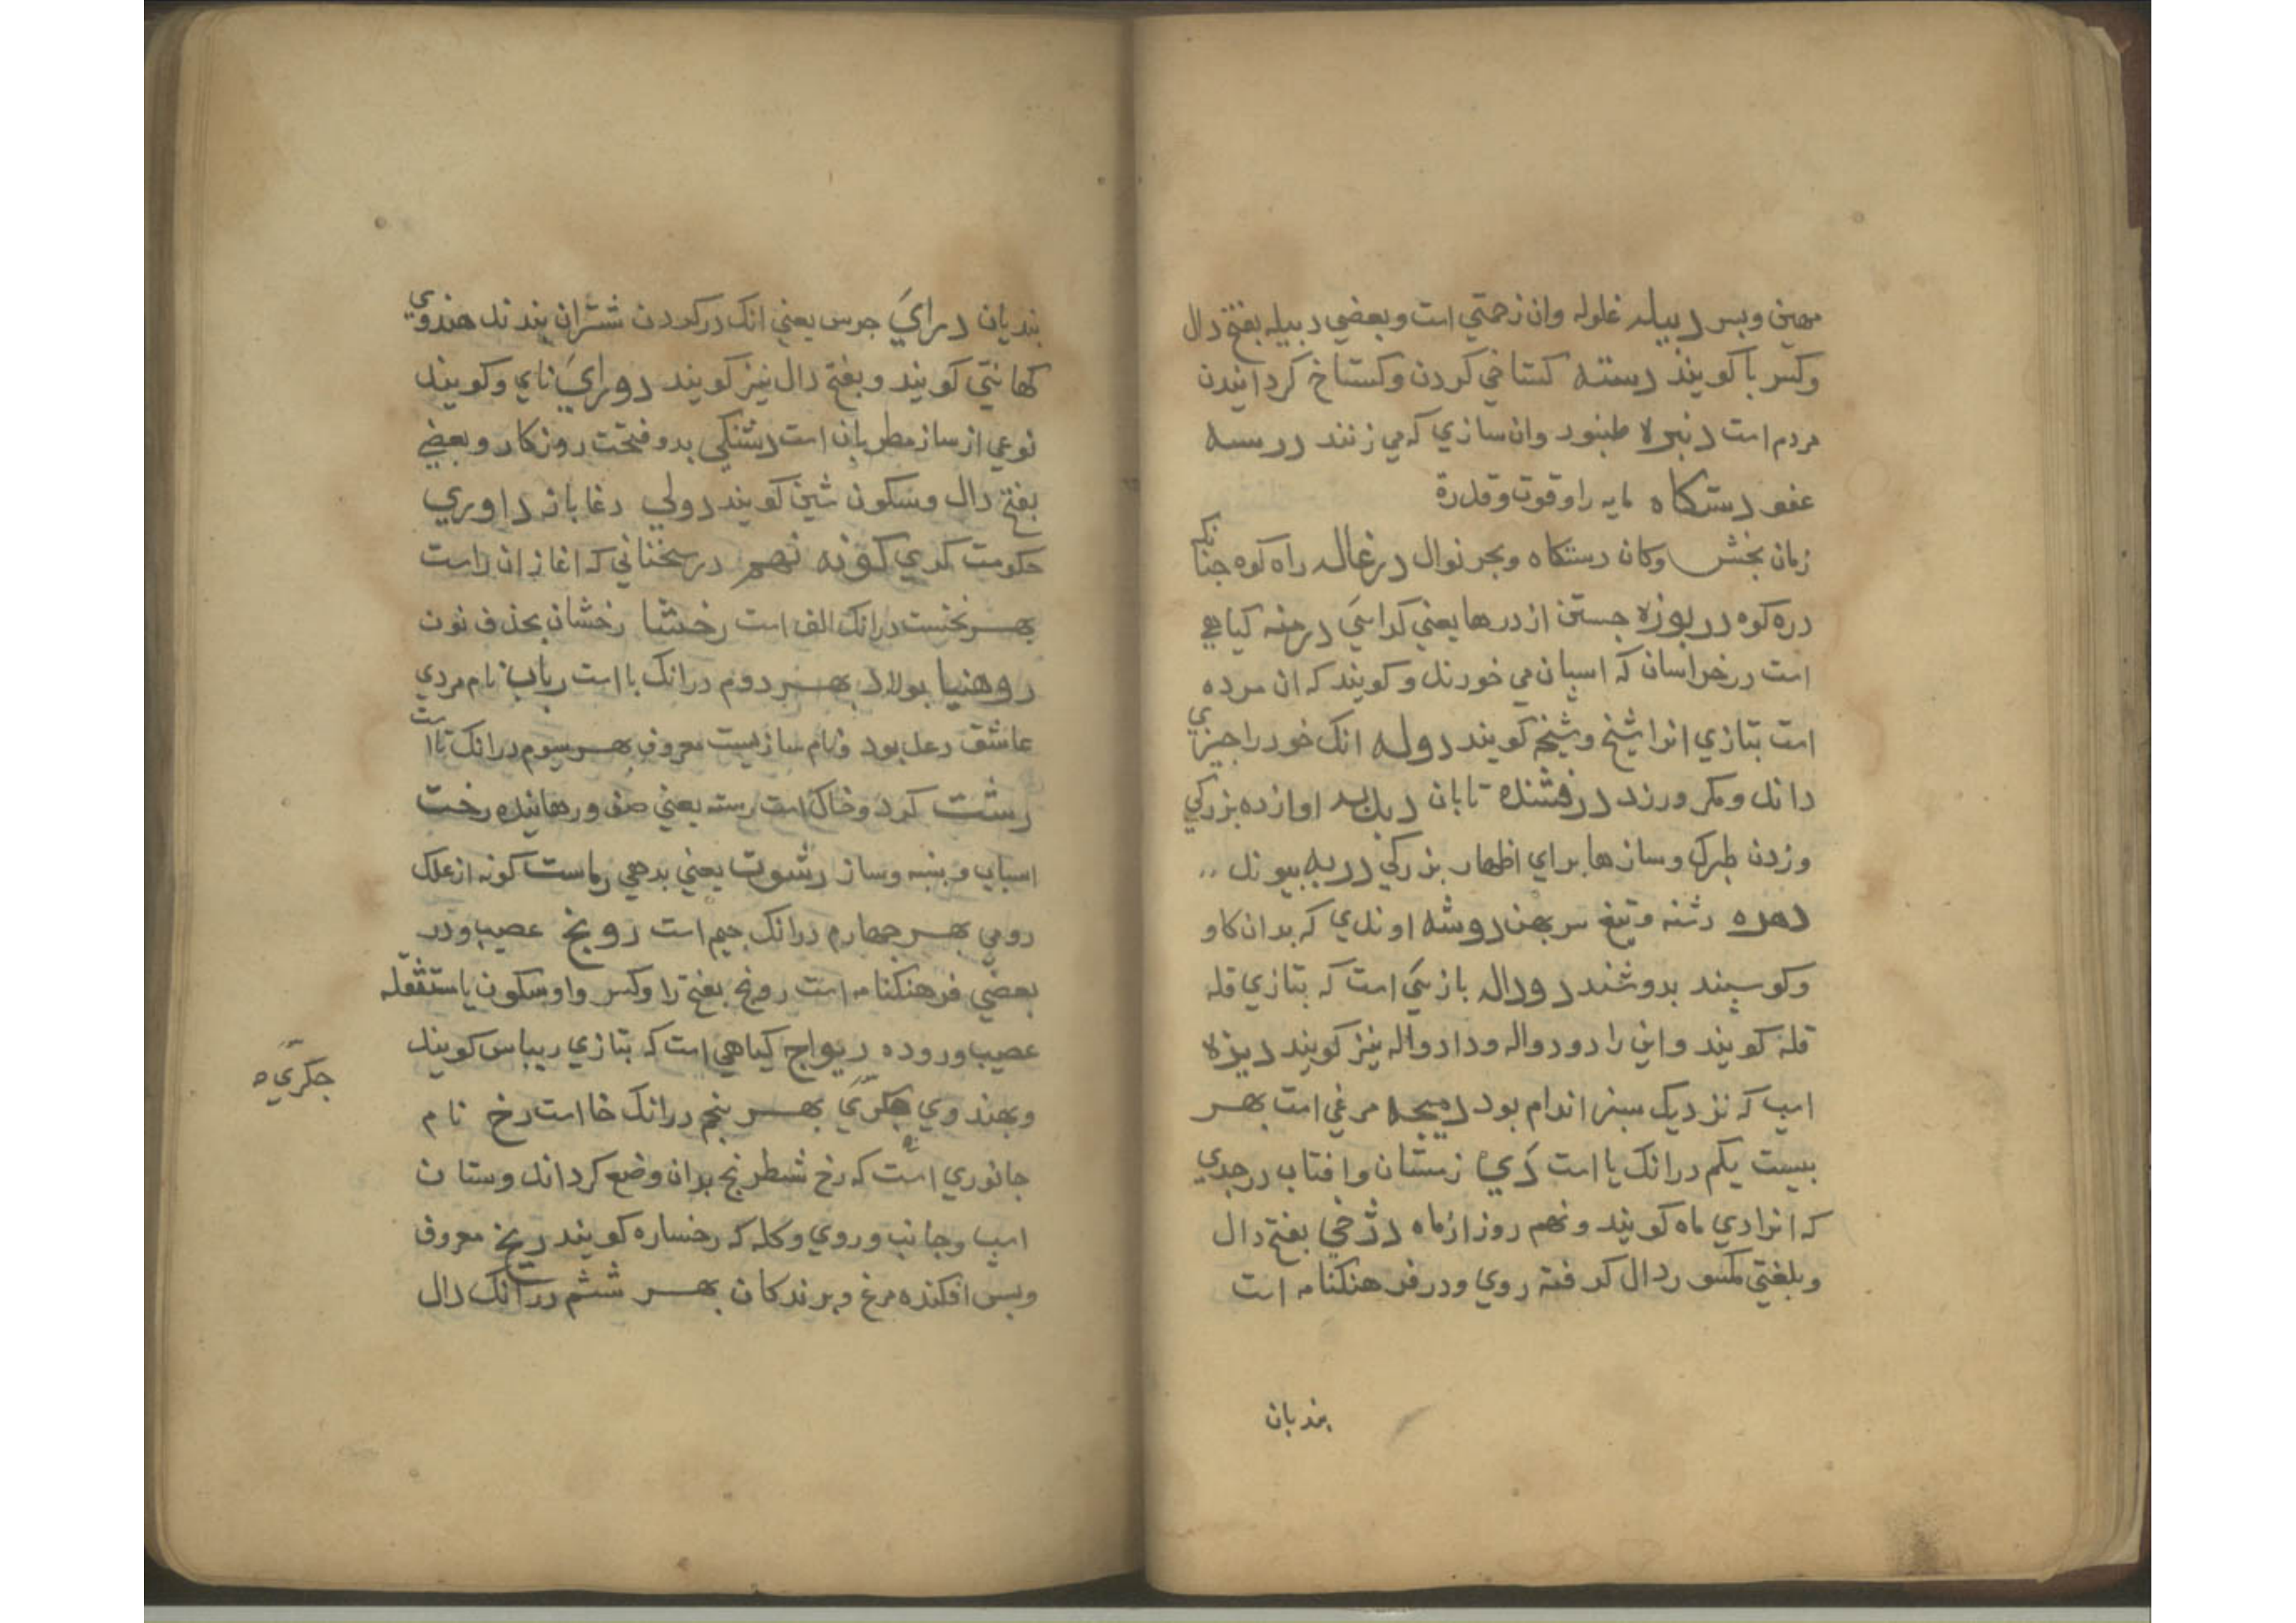 مهين وبس دبيله غلوله وان زحمتي است وبعضي دبيله بفتح دال
وكسر با كويند دسته كستاخي كردن وكستاخ كردانيدن
مردم است دنبره طنبور وان سازي كه مي زنند درسه
عفو دستكاه مايه را وقوت وقدرة
زمان بخش وكان دستكاه وبحر نوال درغاله راه كوه جنانكه
دره كوه دريوزه جستن از درها يعني كدايي درمنه كياهي
است در خراسان كه اسبان مي خورند وكويند كه ان مرده
است بتازي انرا شيخ وشيخه كويند دوله انك خود را جيزي
داند ومكر ورزد درفشنده تابان دبدبه اوازده بزركي
وزدن طبرك وسازها براي اظهار بزركي دربه بيوند
دهره دشنه وتيغ سر بهن دوشه اوندي كه بدان كاو
وكوسبند بدوشند دوداله بازيي است كه بتازي قله
قله كويند واين را دودواله ودادواله نيز كويند ديزه
اسب كه نزديك سبز اندام بود دميجه مرغي است بهر
بيست يكم درانك يا است دي زمستان وافتاب در جدي
كه انرا دي ماه كويند ونهم روز از ماه دژخي بفتح دال
وبلغتي مكسور دال كرفته روي ودر فرهنكنامه است
بندبان
بنديان دراي جرس يعني انك در كردن شتران بندند هندوي
كهانتي كويند وبفتح دال نيز كويند دوراي ناي وكويند
نوعي از ساز مطربان است دشنكي بدو فتحت روزكار وبعضي
بفتح دال وسكون شين كويند دولي دغا باز داوري
حكومت كري كونه نهم در سخناني كه اغاز ان راست
بهر نخست درانك الف است رخشا رخشان بحذف نون
روهنيا بولاد بهر دوم درانك با است رباب نام مردي
عاشق دعد بود ونام سازيست معروف بهر سيوم درانك تا است
رشت كرد وخاك است رسته يعني صف ورهانيده رخت
اسباب وبنبه وساز رشوت يعني بدهي رماست كونه از علك
رومي بهر جهارم درانك جيم است رويخ عصيب ودر
بعضي فرهنكنامه است رويخ بفتح را وكسر واو وسكون يا مستثقله
عصيب وروده ريواج كياهي است كه بتازي ريباس كويند
وبهندوي جكري بهر بنجم درانك خا است رخ نام
جانوري است كه رخ شطرنج بران وضع كردانند وستان
اسب وجانب وروي وكله كه رخساره كويند ريخ معروف
وبس افكنده مرغ وبرندكان بهر ششم درانك دال
جكري